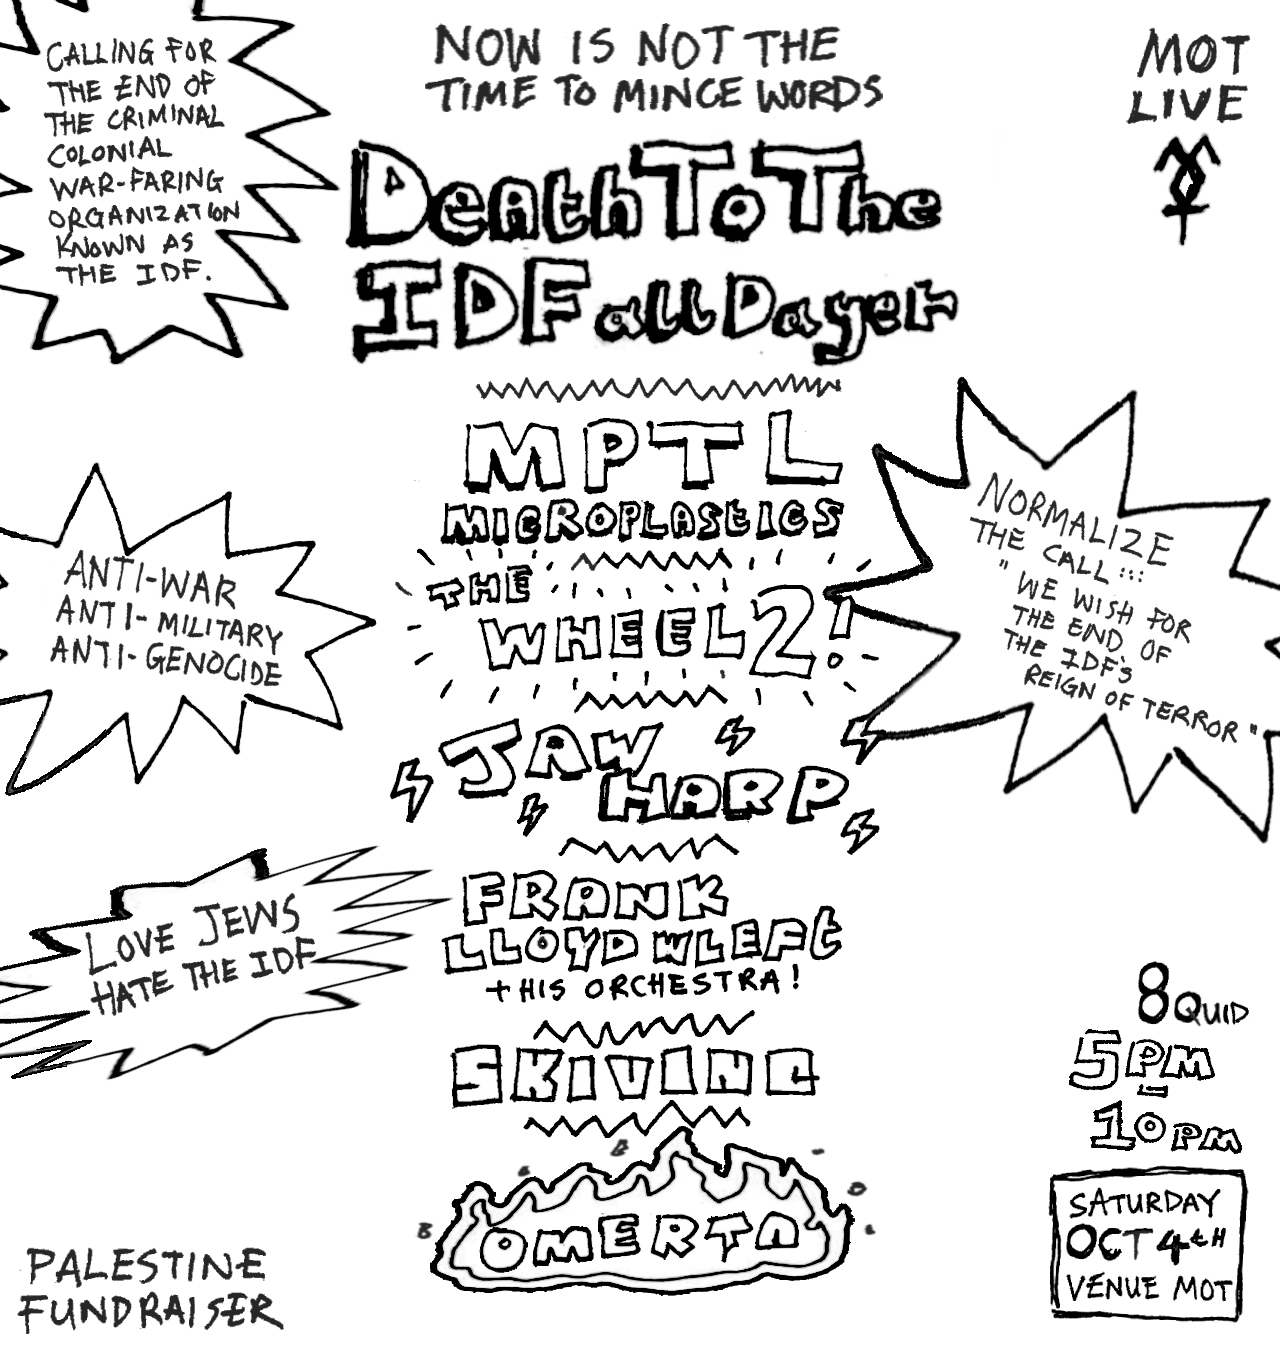 CALLING FOR
THE END OF
THE CRIMINAL
COLONIAL
WAR-FARING
ORGANIZATION
KNOWN AS
THE IDF.
NOW IS NOT THE
TIME TO MINCE WORDS
DeathToThe
IDF allDayer
MOT
LIVE
MPTL
MICROPLASTICS
THE
WHEEL2!
JAW
HARP
FRANK
LLOYD WLEFT
+ HIS ORCHESTRA!
SKIVING
OMERTA
ANTI-WAR
ANTI-MILITARY
ANTI-GENOCIDE
NORMALIZE
THE CALL :::
"WE WISH FOR
THE END OF
THE IDF's
REIGN OF TERROR"
LOVE JEWS
HATE THE IDF
PALESTINE
FUNDRAISER
8 QUID
5PM
-
10PM
SATURDAY
OCT 4tH
VENUE MOT